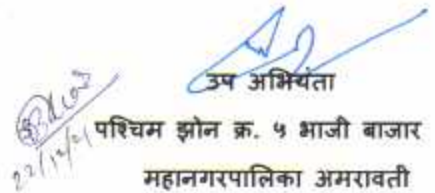 उप अभियंता
पश्चिम झोन क्र. ५ भाजी बाजार
महानगरपालिका अमरावती
22/12/21